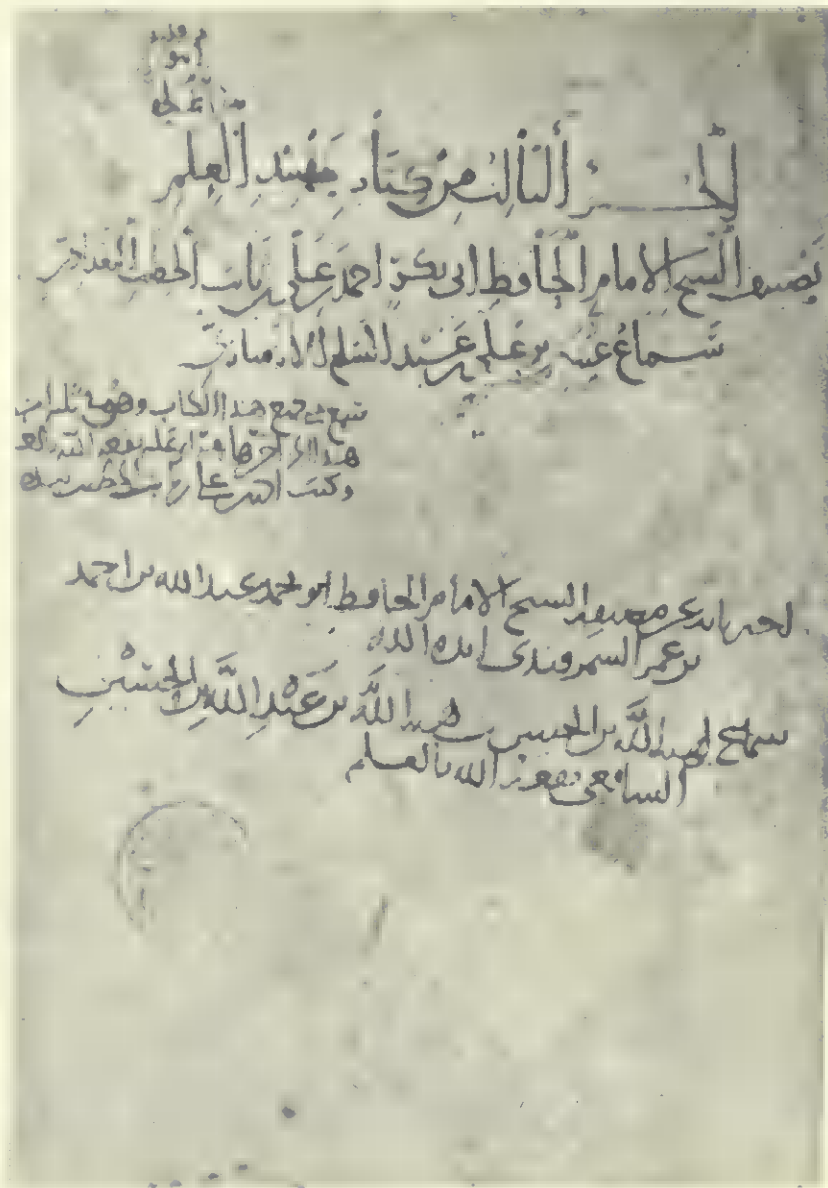 الجزء الثالث من كتاب تقييد العلم
تصنيف الشيخ الامام الحافظ ابي بكر احمد بن علي بن ثابت الخطيب البغدادي
سماع غيث بن علي بن عبد السلم الارمنازي
سمع مني جميع هذا الكتاب وهو ثلثة اجزا
هذا الجز اخرها نفعه الله به
وكتب احمد بن علي بن ثابت الخطيب بيده
اخبرنا به عن مصنفه الشيخ الامام الحافظ ابو محمد عبد الله بن احمد
بن عمر السمرقندي ايده الله
سماع لهبة الله بن الحسن بن هبة الله بن عبد الله بن الحسين
الشافعي نفعه الله بالعلم